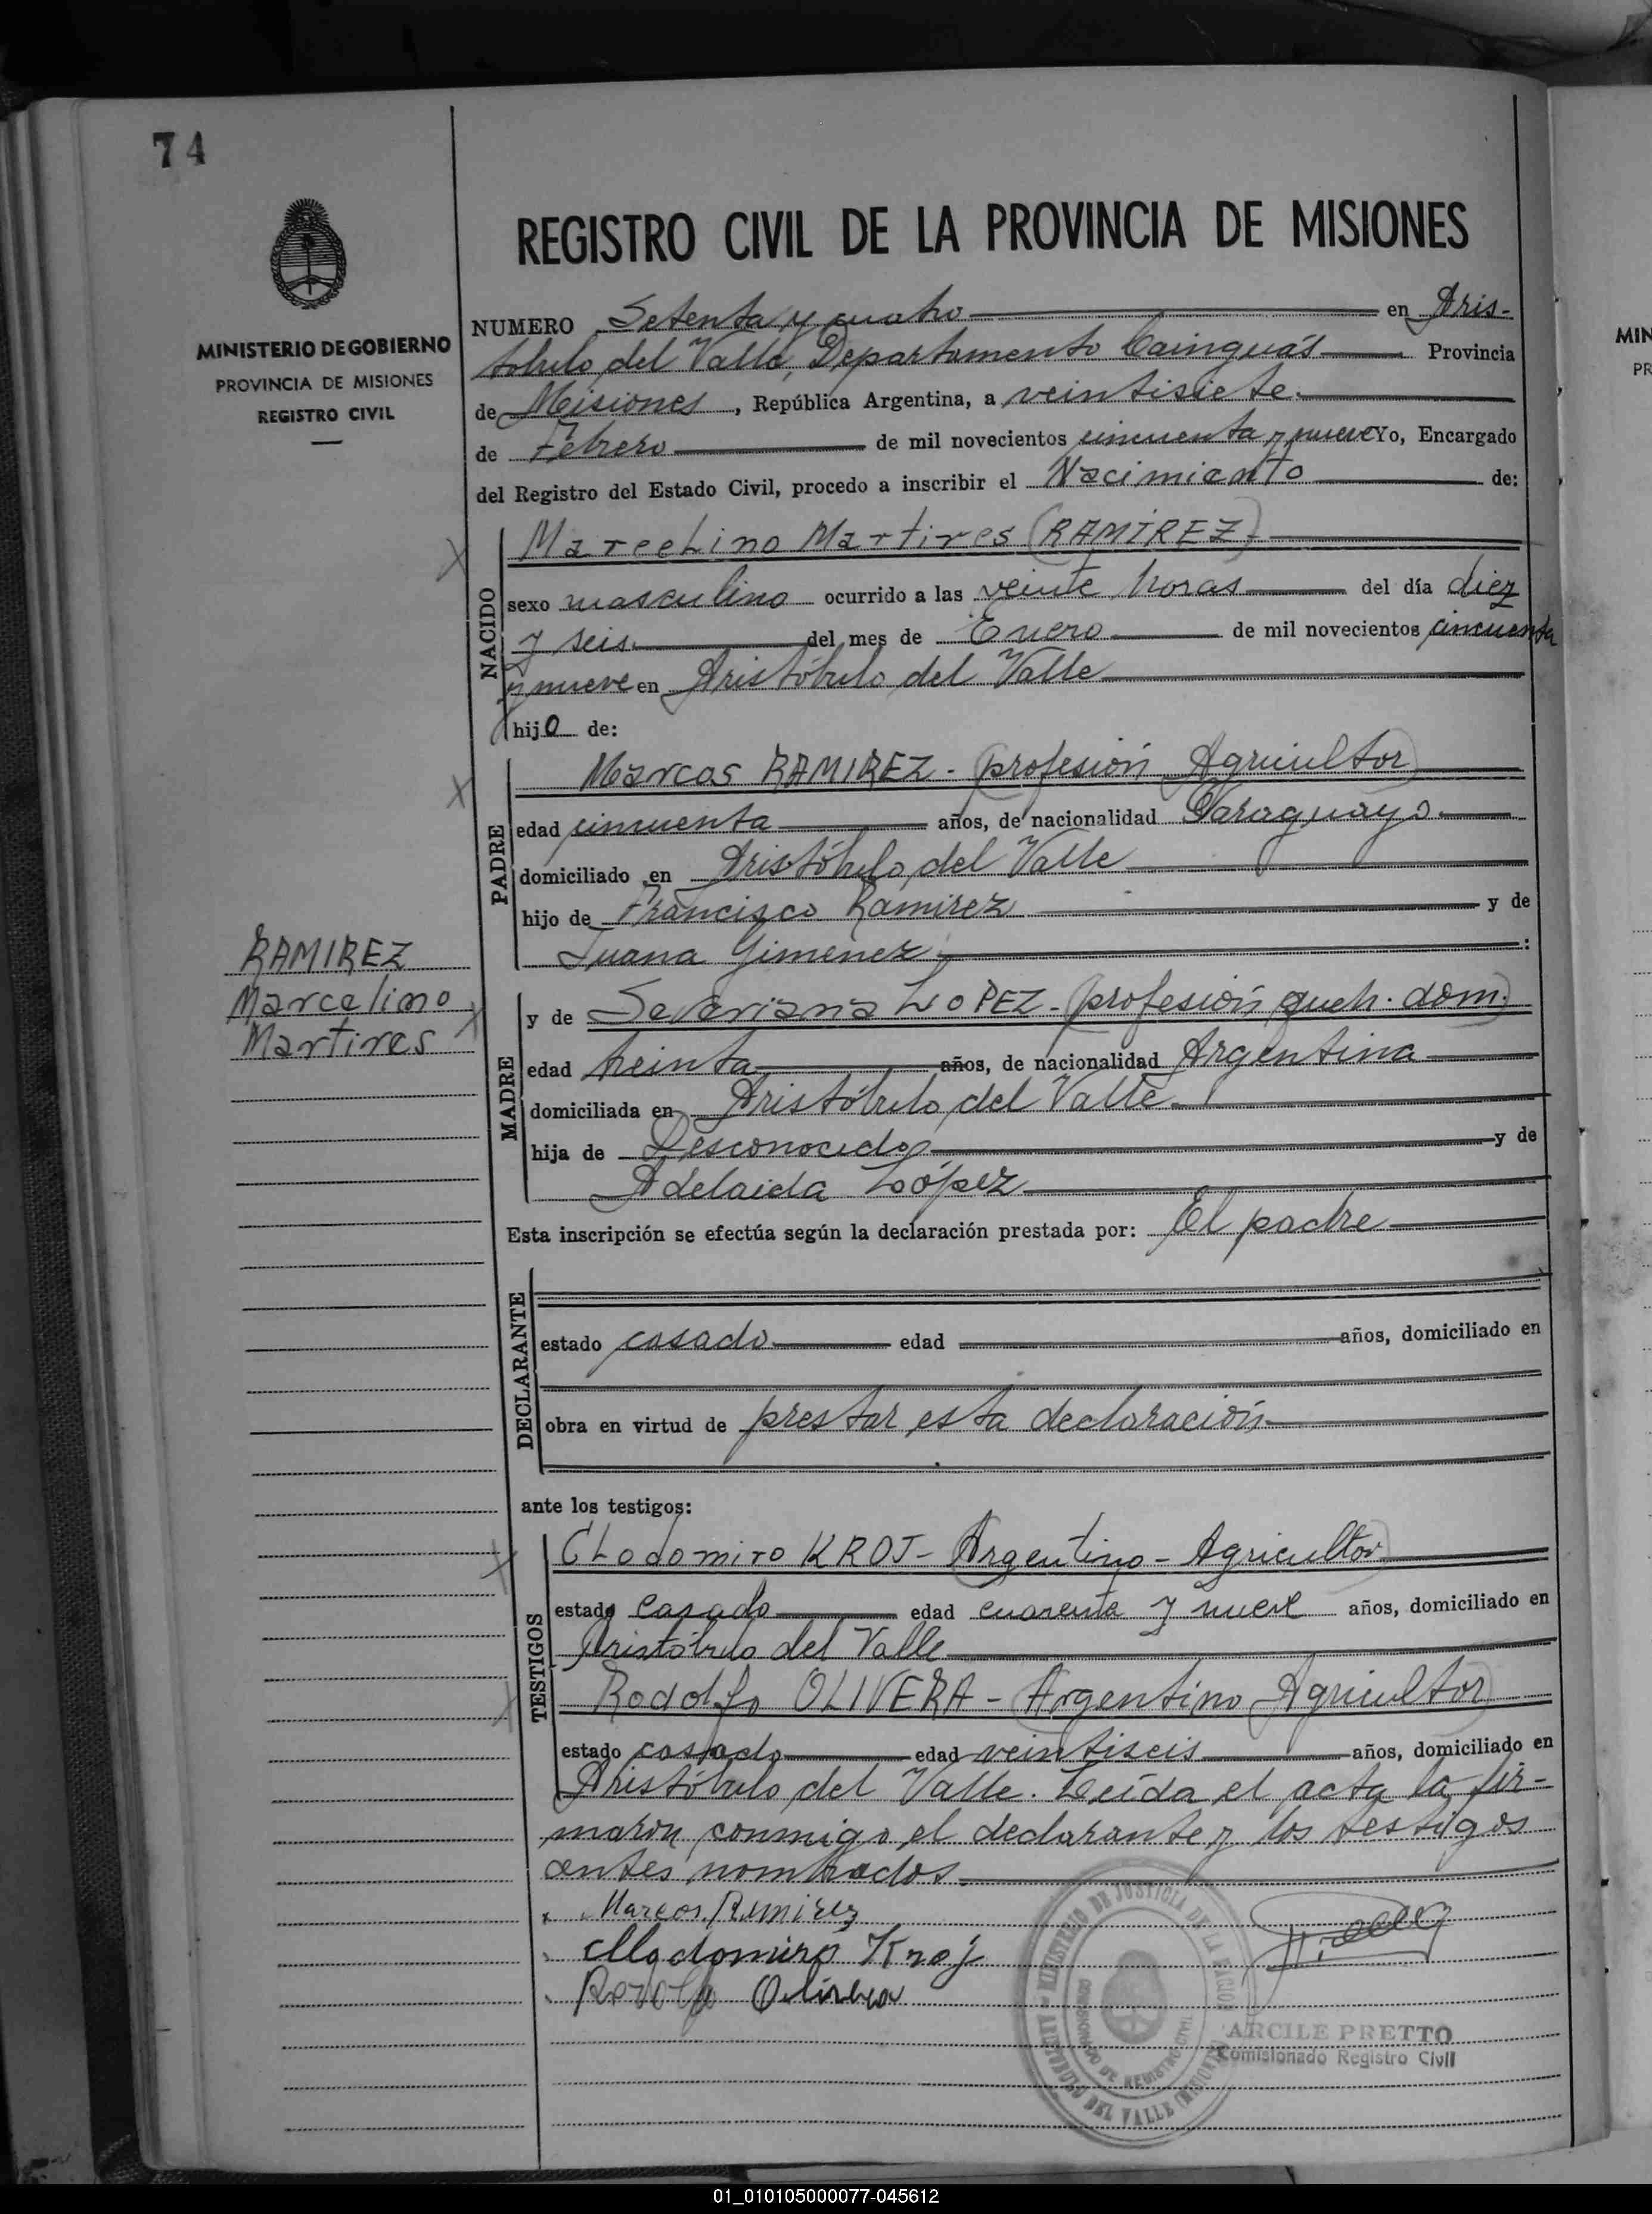 74
MINISTERIO DE GOBIERNO
PROVINCIA DE MISIONES
REGISTRO CIVIL
REGISTRO CIVIL DE LA PROVINCIA DE MISIONES
NUMERO Setenta y cuatro en Aris-
tóbulo del Valle, Departamento Cainguás Provincia
de Misiones, República Argentina, a veintisiete
de Febrero de mil novecientos cincuenta y nueve Yo, Encargado
del Registro del Estado Civil, procedo a inscribir el Nacimiento de:
NACIDO
Marcelino Martires (RAMIREZ)
sexo masculino ocurrido a las veinte horas del día diez
y seis del mes de Enero de mil novecientos cincuenta
y nueve en Aristóbulo del Valle
hijo de:
PADRE
Marcos RAMIREZ - (profesión Agricultor)
edad cincuenta años, de nacionalidad Paraguayo
domiciliado en Aristóbulo del Valle
hijo de Francisco Ramirez y de
Juana Gimenez :
RAMIREZ
Marcelino
Martires
MADRE
y de Severiana LOPEZ - (profesión queh. dom.)
edad treinta años, de nacionalidad Argentina
domiciliada en Aristóbulo del Valle
hija de Desconocido y de
Adelaida López
Esta inscripción se efectúa según la declaración prestada por: El padre
DECLARANTE
estado casado edad años, domiciliado en
obra en virtud de prestar esta declaración
ante los testigos:
TESTIGOS
CLodomiro KROJ - (Argentino - Agricultor)
estado casado edad cuarenta y nueve años, domiciliado en
Aristóbulo del Valle
Rodolfo OLIVERA - (Argentino Agricultor)
estado casado edad veintiseis años, domiciliado en
Aristóbulo del Valle. Leída el acta la fir-
maron conmigo el declarante y los testigos
antes nombrados.
Marcos Ramirez
Clodomiro Kroj
Rodolfo Olivera
MINISTERIO DE JUSTICIA DE LA NACION
ARISTOBULO DEL VALLE (MISIONES)
ARCILE PRETTO
Comisionado Registro Civil
MIN
PR
01_010105000077-045612